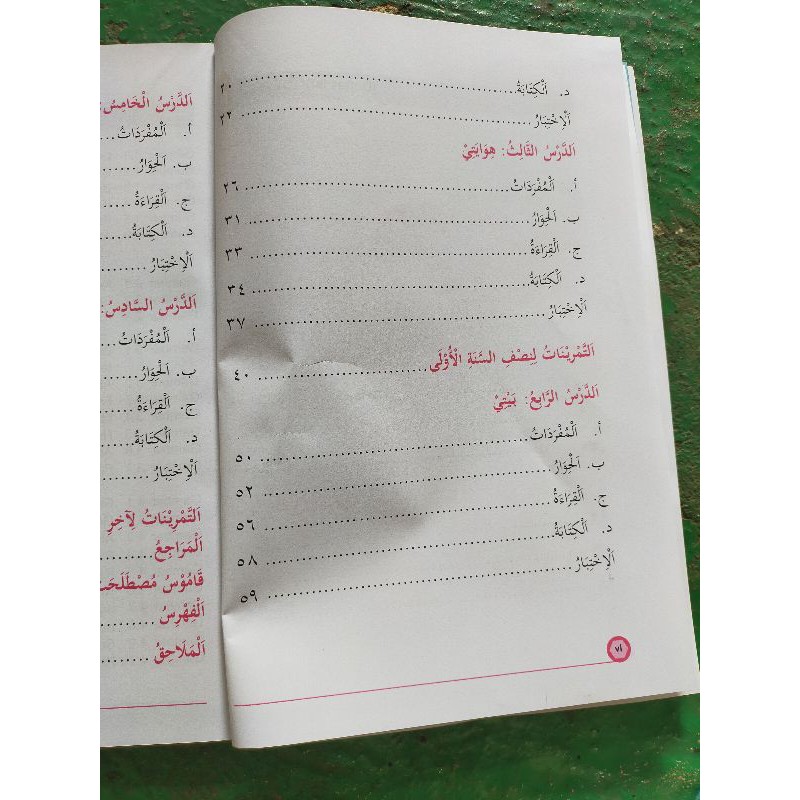 د. اَلْكِتَابَةُ ........ ٢٠
اَلْاِخْتِبَارُ ........ ٢٢
اَلدَّرْسُ الثَّالِثُ: هِوَايَتِيْ
أ. اَلْمُفْرَدَاتُ ........ ٢٦
ب. اَلْحِوَارُ ........ ٣١
ج. اَلْقِرَاءَةُ ........ ٣٣
د. اَلْكِتَابَةُ ........ ٣٤
اَلْاِخْتِبَارُ ........ ٣٧
اَلتَّمْرِيْنَاتُ لِنِصْفِ السَّنَةِ الْأُوْلَى ........ ٤٠
اَلدَّرْسُ الرَّابِعُ: بَيْتِيْ
أ. اَلْمُفْرَدَاتُ ........ ٥٠
ب. اَلْحِوَارُ ........ ٥٢
ج. اَلْقِرَاءَةُ ........ ٥٦
د. اَلْكِتَابَةُ ........ ٥٨
اَلْاِخْتِبَارُ ........ ٥٩
اَلدَّرْسُ الْخَامِسُ:
أ. اَلْمُفْرَدَاتُ ....
ب. اَلْحِوَارُ ....
ج. اَلْقِرَاءَةُ ....
د. اَلْكِتَابَةُ ....
اَلْاِخْتِبَارُ ....
اَلدَّرْسُ السَّادِسُ:
أ. اَلْمُفْرَدَاتُ ....
ب. اَلْحِوَارُ ....
ج. اَلْقِرَاءَةُ ....
د. اَلْكِتَابَةُ ....
اَلْاِخْتِبَارُ ....
اَلتَّمْرِيْنَاتُ لِآخِرِ
اَلْمَرَاجِعُ ....
قَامُوْسُ
اَلْفِهْرِسُ ....
اَلْمَلَاحِقُ ....